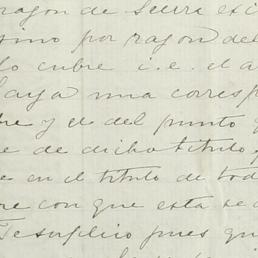 razon de Seura exi
sino por razon del
lo cubre i.e. el a
haya una corresp
re y el del punto q
e de dicho titulo y
e en el titulo de tod
re con que esta se a
Te suplico pues qu